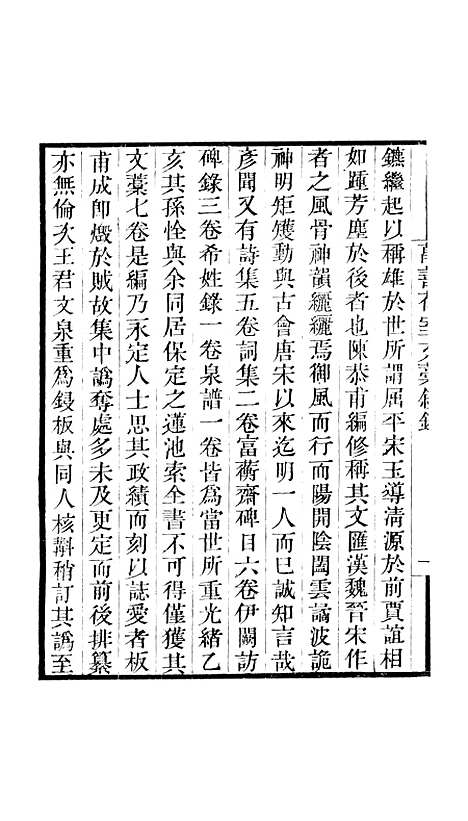 鑣繼起以稱雄於世所謂屈平宋玉導清源於前賈誼相
如踵芳塵於後者也陳恭甫編修稱其文匯漢魏晉宋作
者之風骨神韻纚纚焉御風而行而陽開陰闔雲譎波詭
神明矩矱動與古會唐宋以來迄明一人而已誠知言哉
彥聞又有詩集五卷詞集二卷富蘅齋碑目六卷伊闕訪
碑錄三卷希姓錄一卷泉譜一卷皆爲當世所重光緒乙
亥其孫恮與余同居保定之蓮池索全書不可得僅獲其
文藁七卷是編乃永定人士思其政績而刻以誌愛者板
甫成卽燬於賊故集中譌奪處多未及更定而前後排纂
亦無倫次王君文泉重爲鋟板與同人核斠稍訂其譌至